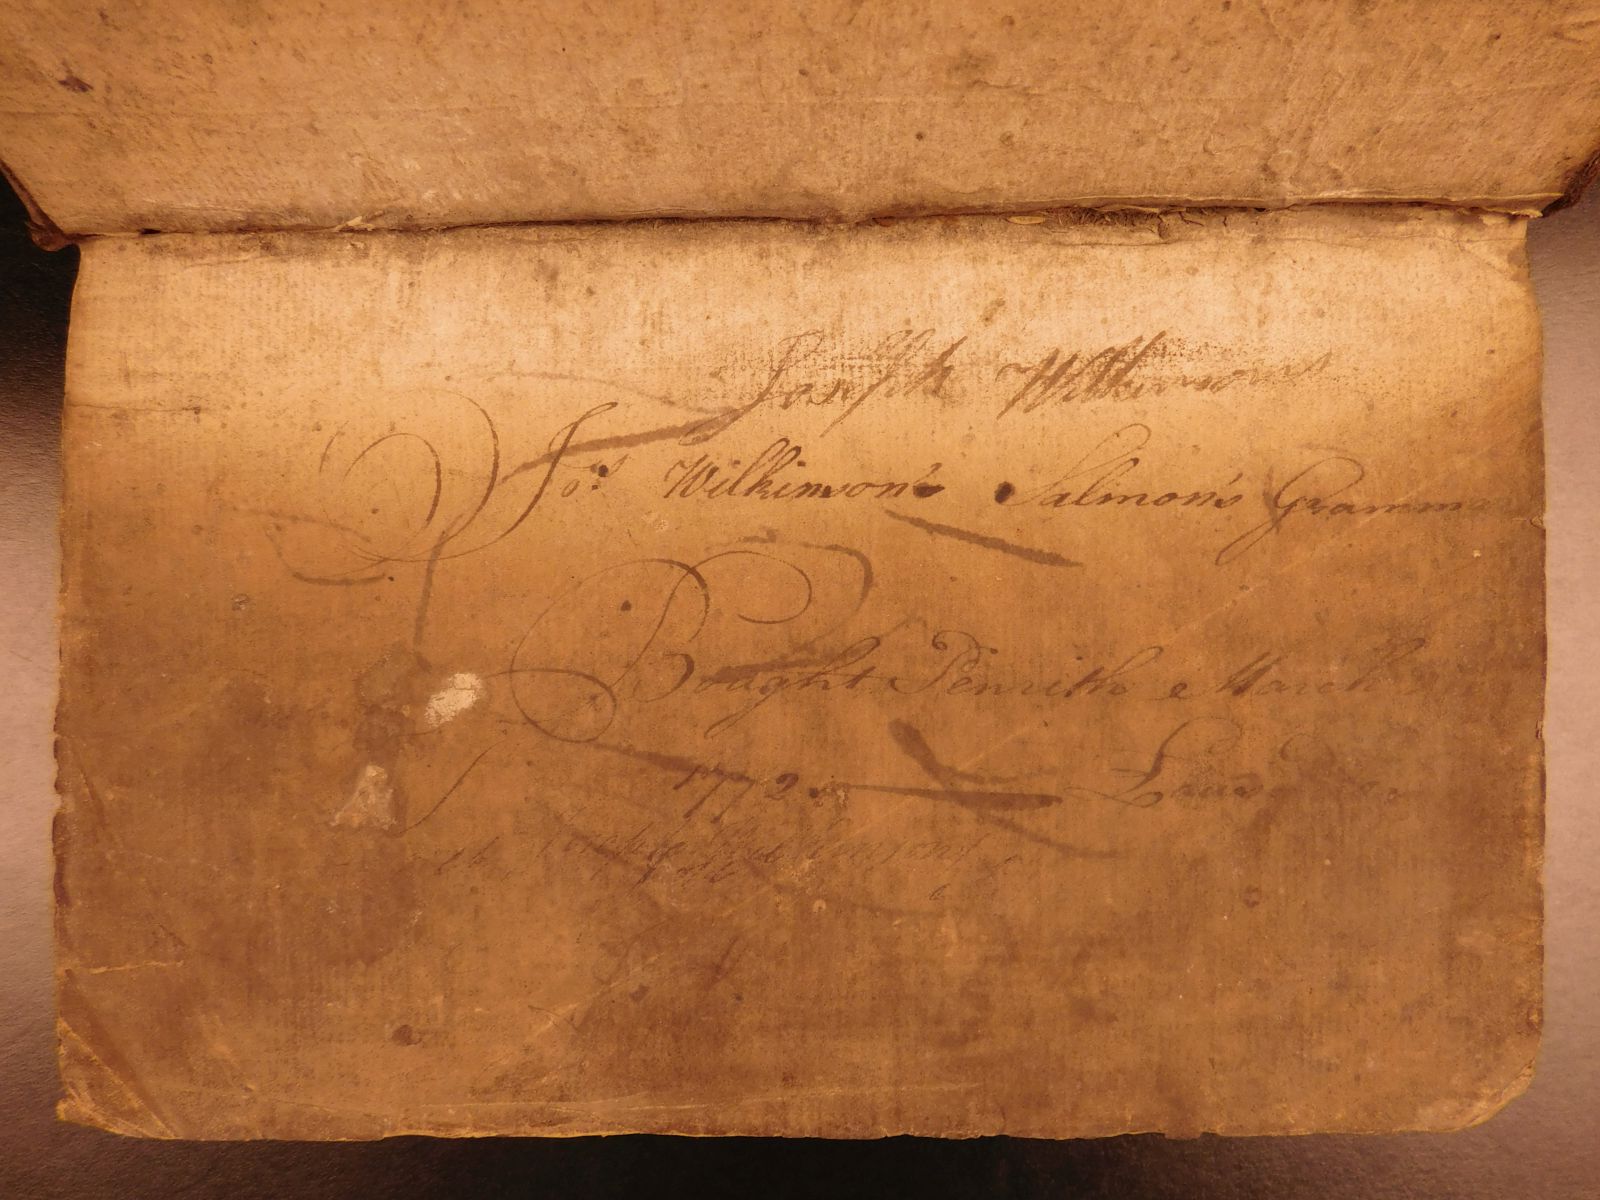 Joseph Wilkinsons
Jos. Wilkinson's Salmon's Gramm
Bought Penrith March
1772. Laus Deo.
Joseph Wilkinson